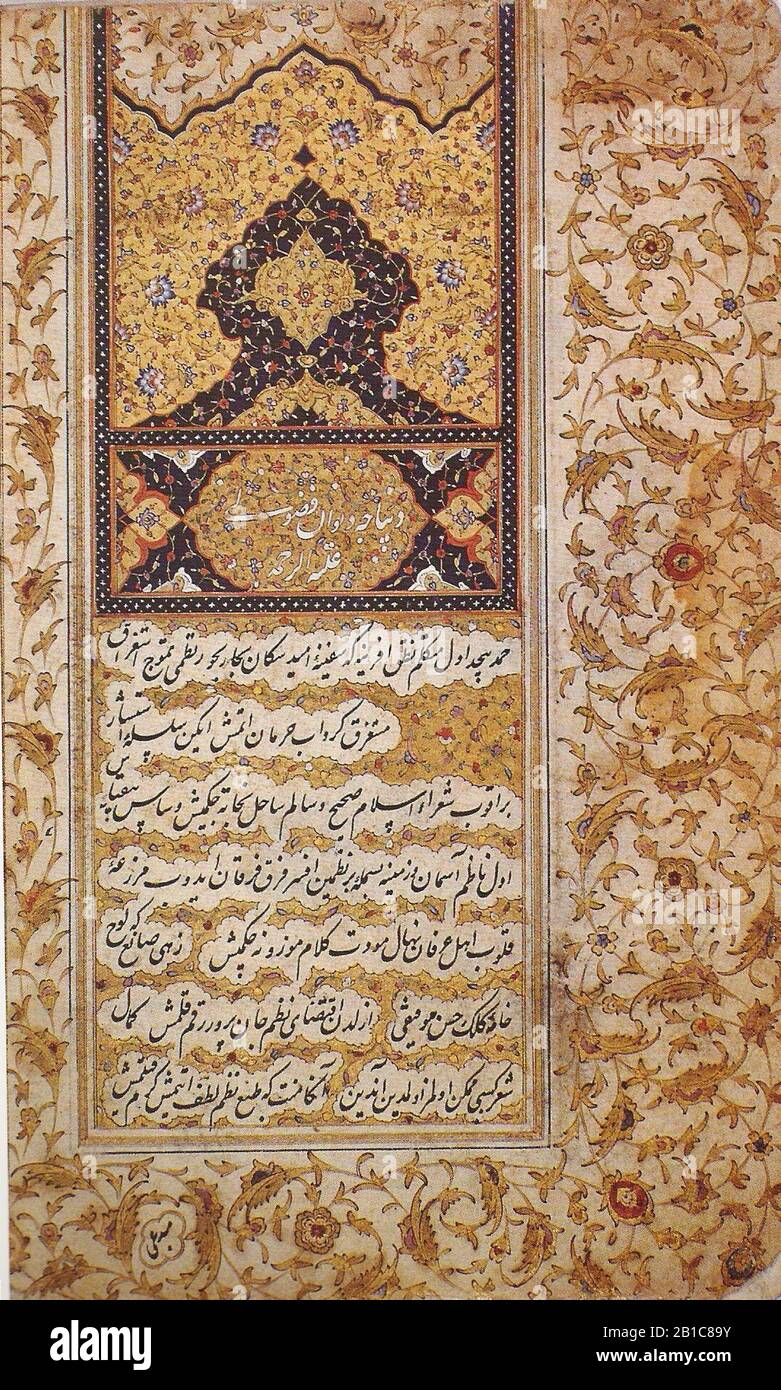 دیباجه دیوان فضولی
علیه الرحمه
حمد بیحد اول متکلم نطق آفرینه که سفینهٔ امید سکان بحار بحور نظمی تموج
مستغرق گرداب حرمان اتمش لیکن سلسلهٔ
براقوب شعراء اسلام صحیح و سالم ساحل نجاته چکمیش و سپاس بیقیاس
اول ناظم آسمان و زمینه بسمله بر نظمین افسر فرق فرقان ایدوب مزرعهٔ
قلوب اهل عرفانه نهال مودت کلام موزونه چکمیش زهی صانع که لوح
خامهٔ کلک حسن از لدن اقتضای نظم جان پرور رقم قلمش کمال
شعر کسبی ممکن اولمز اولدین آندین آنکا منت که طبع نظم لطف اتمیش کرم قلمیش
alamy
Image ID: 2B1C89Y
www.alamy.com